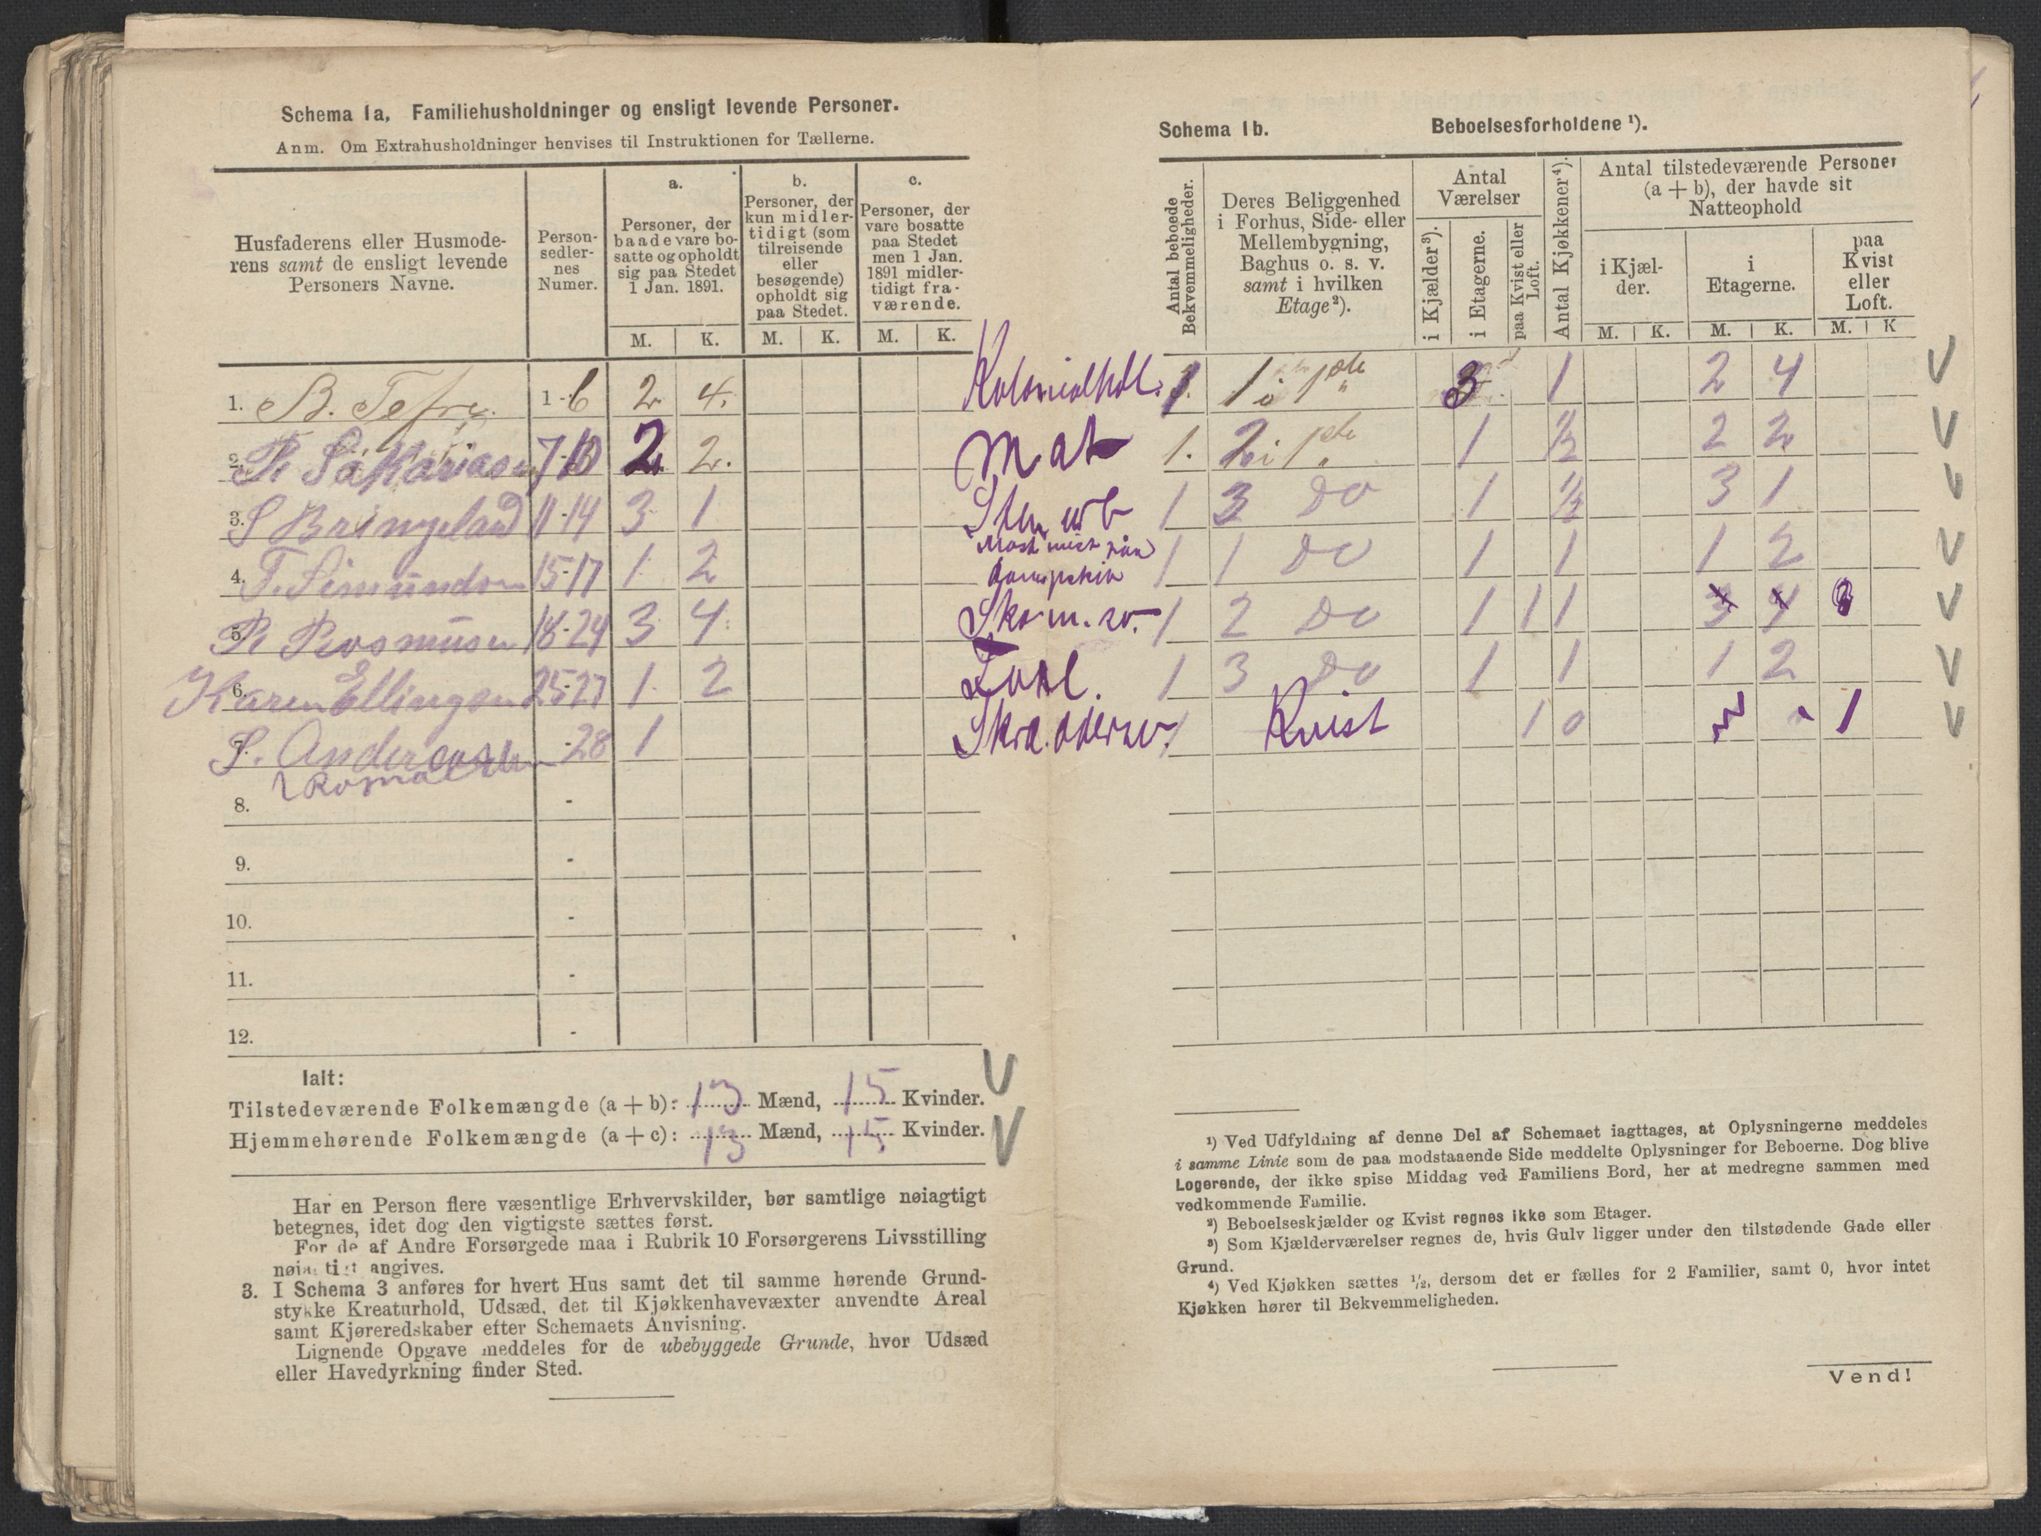 Schema 1a, Familiehusholdninger og ensligt levende Personer.
Anm. Om Extrahusholdninger henvises til Instruktionen for Tællerne.
Husfaderens eller Husmode-
rens samt de ensligt levende
Personers Navne.
Person-
sedler-
nes
Numer.
a.
Personer, der
baade vare bo-
satte og opholdt
sig paa Stedet
1 Jan. 1891.
b.
Personer, der
kun midler-
tidigt (som
tilreisende
eller
besøgende)
opholdt sig
paa Stedet.
c.
Personer, der
vare bosatte
paa Stedet
men 1 Jan.
1891 midler-
tidigt fra-
værende.
M. K. M. K. M. K.
1. B. Tefre. 1-6 2 4.
2. R Sakariasen 7-10 2 2.
3. S Bringeland 11-14 3 1
4. T. Simundsen 15-17 1 2
5. R Rosmusen 18-24 3 4
6. Karen Ellingsen 25-27 1 2
7. S. Andersen -28 1
8. -
9. -
10. -
11. -
12. -
Ialt:
Tilstedeværende Folkemængde (a + b): 13 Mænd, 15 Kvinder.
Hjemmehørende Folkemængde (a + c): 13 Mænd, 15 Kvinder.
Har en Person flere væsentlige Erhvervskilder, bør samtlige nøiagtigt
betegnes, idet dog den vigtigste sættes først.
For de af Andre Forsørgede maa i Rubrik 10 Forsørgerens Livsstilling
nøiagtigt angives.
3. I Schema 3 anføres for hvert Hus samt det til samme hørende Grund-
stykke Kreaturhold, Udsæd, det til Kjøkkenhavevæxter anvendte Areal
samt Kjøreredskaber efter Schemaets Anvisning.
Lignende Opgave meddeles for de ubebyggede Grunde, hvor Udsæd
eller Havedyrkning finder Sted.
Schema 1b. Beboelsesforholdene ¹).
Antal beboede
Bekvemmeligheder.
Deres Beliggenhed
i Forhus, Side- eller
Mellembygning,
Baghus o. s. v.
samt i hvilken
Etage²).
Antal
Værelser
i Kjælder³).
i Etagerne.
paa Kvist eller
Loft.
Antal Kjøkkener⁴).
Antal tilstedeværende Personer
(a + b), der havde sit
Natteophold
i Kjæl-
der.
i
Etagerne.
paa
Kvist
eller
Loft.
M. K. M. K. M. K
Kolonialhdl. 1. 1 i 1ste 3 1 2 4
Mat 1. 2 i 1ste 1 ½ 2 2
Sten arb 1 3 Do 1 ½ 3 1
1 1 Do 1 1 1 2
Skom. sv. 1 2 Do 1 1 1 3 4 3
1 3 Do 1 1 1 2
1 Kvist 1 0 1
¹) Ved Udfyldning af denne Del af Schemaet iagttages, at Oplysningerne meddeles
i samme Linie som de paa modstaaende Side meddelte Oplysninger for Beboerne. Dog blive
Logerende, der ikke spise Middag ved Familiens Bord, her at medregne sammen med
vedkommende Familie.
²) Beboelseskjælder og Kvist regnes ikke som Etager.
³) Som Kjælderværelser regnes de, hvis Gulv ligger under den tilstødende Gade eller
Grund.
⁴) Ved Kjøkken sættes ½, dersom det er fælles for 2 Familier, samt 0, hvor intet
Kjøkken hører til Bekvemmeligheden.
Vend!